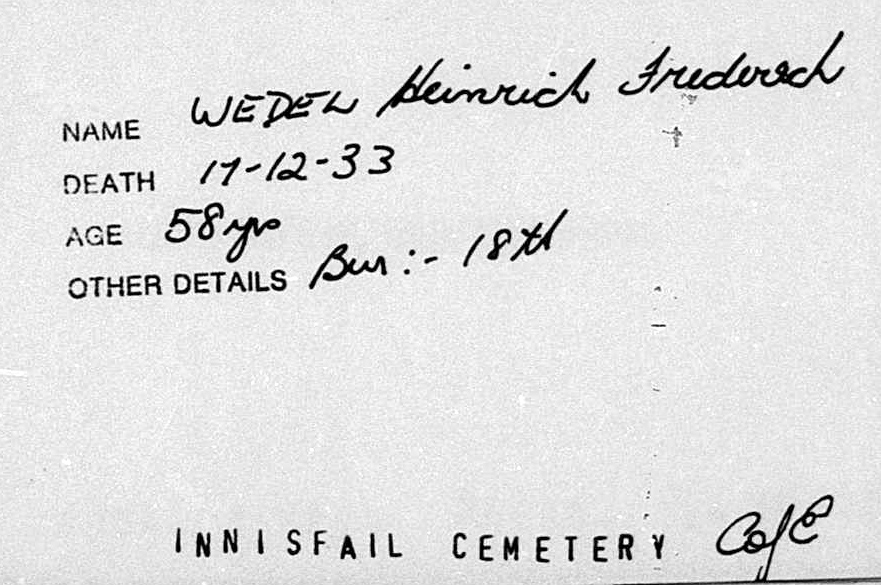 NAME WEDEL Heinrich Frederich
DEATH 17-12-33
AGE 58 yrs
OTHER DETAILS Bur :- 18th
INNISFAIL CEMETERY CofE